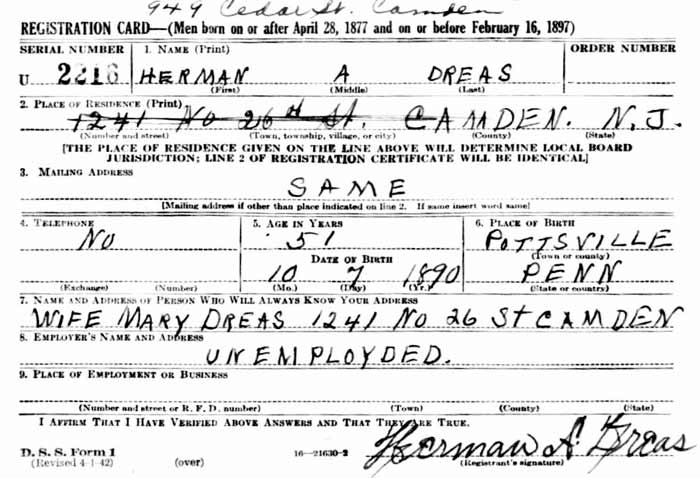 949 Cedar St. Camden
REGISTRATION CARD—(Men born on or after April 28, 1877 and on or before February 16, 1897)
SERIAL NUMBER 1. NAME (Print) ORDER NUMBER
U 2216 HERMAN A DREAS
(First) (Middle) (Last)
2. PLACE OF RESIDENCE (Print)
1241 No 26th St. CAMDEN. N.J.
(Number and street) (Town, township, village, or city) (County) (State)
[THE PLACE OF RESIDENCE GIVEN ON THE LINE ABOVE WILL DETERMINE LOCAL BOARD
JURISDICTION; LINE 2 OF REGISTRATION CERTIFICATE WILL BE IDENTICAL]
3. MAILING ADDRESS
SAME
[Mailing address if other than place indicated on line 2. If same insert word same]
4. TELEPHONE 5. AGE IN YEARS 6. PLACE OF BIRTH
No 51 POTTSVILLE
(Town or county)
DATE OF BIRTH
10 7 1890 PENN
(Exchange) (Number) (Mo.) (Day) (Yr.) (State or country)
7. NAME AND ADDRESS OF PERSON WHO WILL ALWAYS KNOW YOUR ADDRESS
WIFE MARY DREAS 1241 No 26 St CAMDEN
8. EMPLOYER'S NAME AND ADDRESS
UNEMPLOYDED.
9. PLACE OF EMPLOYMENT OR BUSINESS
(Number and street or R. F. D. number) (Town) (County) (State)
I AFFIRM THAT I HAVE VERIFIED ABOVE ANSWERS AND THAT THEY ARE TRUE.
D. S. S. Form 1
(Revised 4-1-42) (over) 16—21630-2 Herman A Dreas
(Registrant's signature)